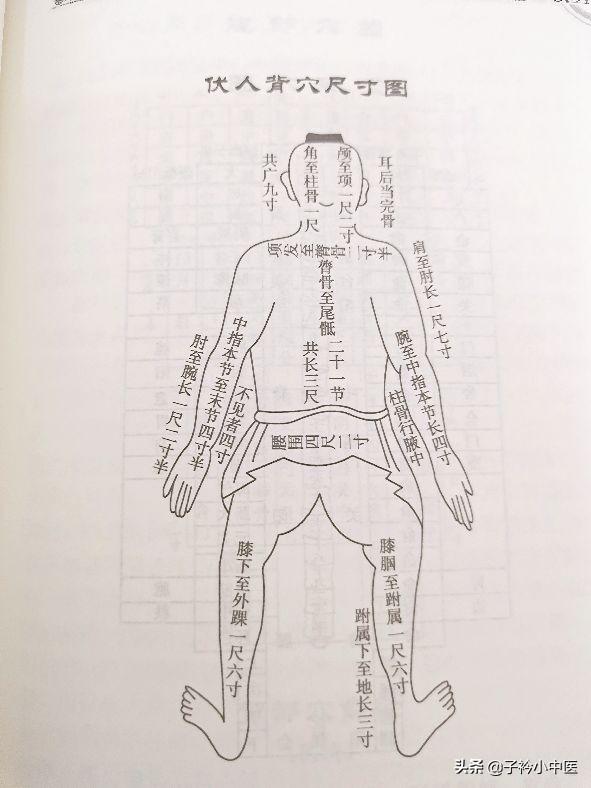 伏人背穴尺寸图
共广九寸
角至柱骨一尺
颅至项一尺二寸
耳后当完骨
项发至膂骨二寸半
膂骨至尾骶
二十一节
共长三尺
肩至肘长一尺七寸
肘至腕长一尺二寸半
中指本节至末节四寸半
不见者四寸
腕至中指本节长四寸
柱骨行腋中
腰围四尺二寸
膝下至外踝一尺六寸
膝腘至跗属一尺六寸
跗属下至地长三寸
头条 @子衿小中医